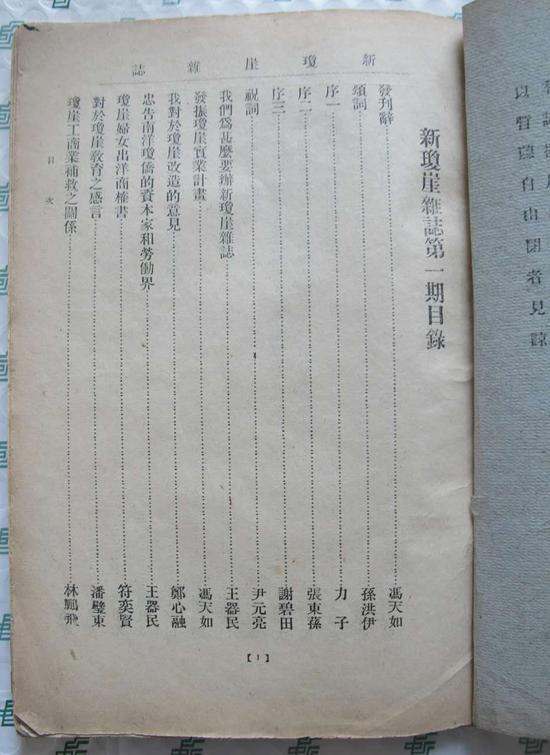 新瓊崖雜誌
新瓊崖雜誌第一期目錄
發刊辭 馮天如
頌詞 孫洪伊
序一 力子
序二 張東蓀
序三 謝碧田
祝詞 尹元亮
我們爲甚麼要辦新瓊崖雜誌 王器民
發振瓊崖實業計畫 馮天如
我對於瓊崖改造的意見 鄭心融
忠告南洋瓊僑的資本家和勞働界 王器民
瓊崖婦女出洋商榷書 符奕賢
對於瓊崖敎育之感言 潘璧東
瓊崖工商業補救之關係 林鵬飛
目次
【1】